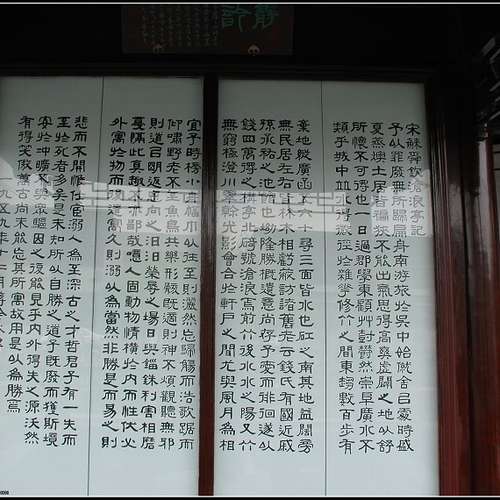 宋蘇舜欽滄浪亭記
予以罪廢無所歸扁舟南游旅於吳中始僦舍㠯處時盛
夏蒸燠土居皆褊狹不能出氣思得高爽虛闢之地以舒
所懷不可得也一日過郡學東顧草樹鬱然崇阜廣水不
類乎城中並水得微徑於雜華修竹之間東趨數百步有
棄地縱廣函五六十尋三面皆水也杠之南其地益闊旁
無民居左右皆林木相虧蔽訪諸舊老云錢氏有國近戚
孫承祐之池館也坳隆勝勢遺意尚存予愛而徘徊遂以
錢四萬得之構亭北碕號滄浪焉前竹後水水之陽又竹
無窮極澄川翠榦光影會合於軒戶之間尤與風月為相
宜予時榜小舟幅巾以往至則灑然忘歸觴而浩歌踞而
仰嘯野老不至魚鳥共樂形骸既適則神不煩觀聽無邪
則道㠯明返思向之汩汩榮辱之場日與錙銖利害相磨
戛隔此真趣不亦鄙哉噫人固動物情橫於內而性伏必
外寓於物而後遣寓久則溺以為當然非勝是而易之則
悲而不開惟仕宦溺人為至深古之才哲君子有一失而
至於死者多矣是未知所以自勝之道予既廢而獲斯境
安於沖曠不與眾驅因之復能見乎內外得失之源沃然
有得笑傲萬古尚未能忘其所寓故用是以為勝焉